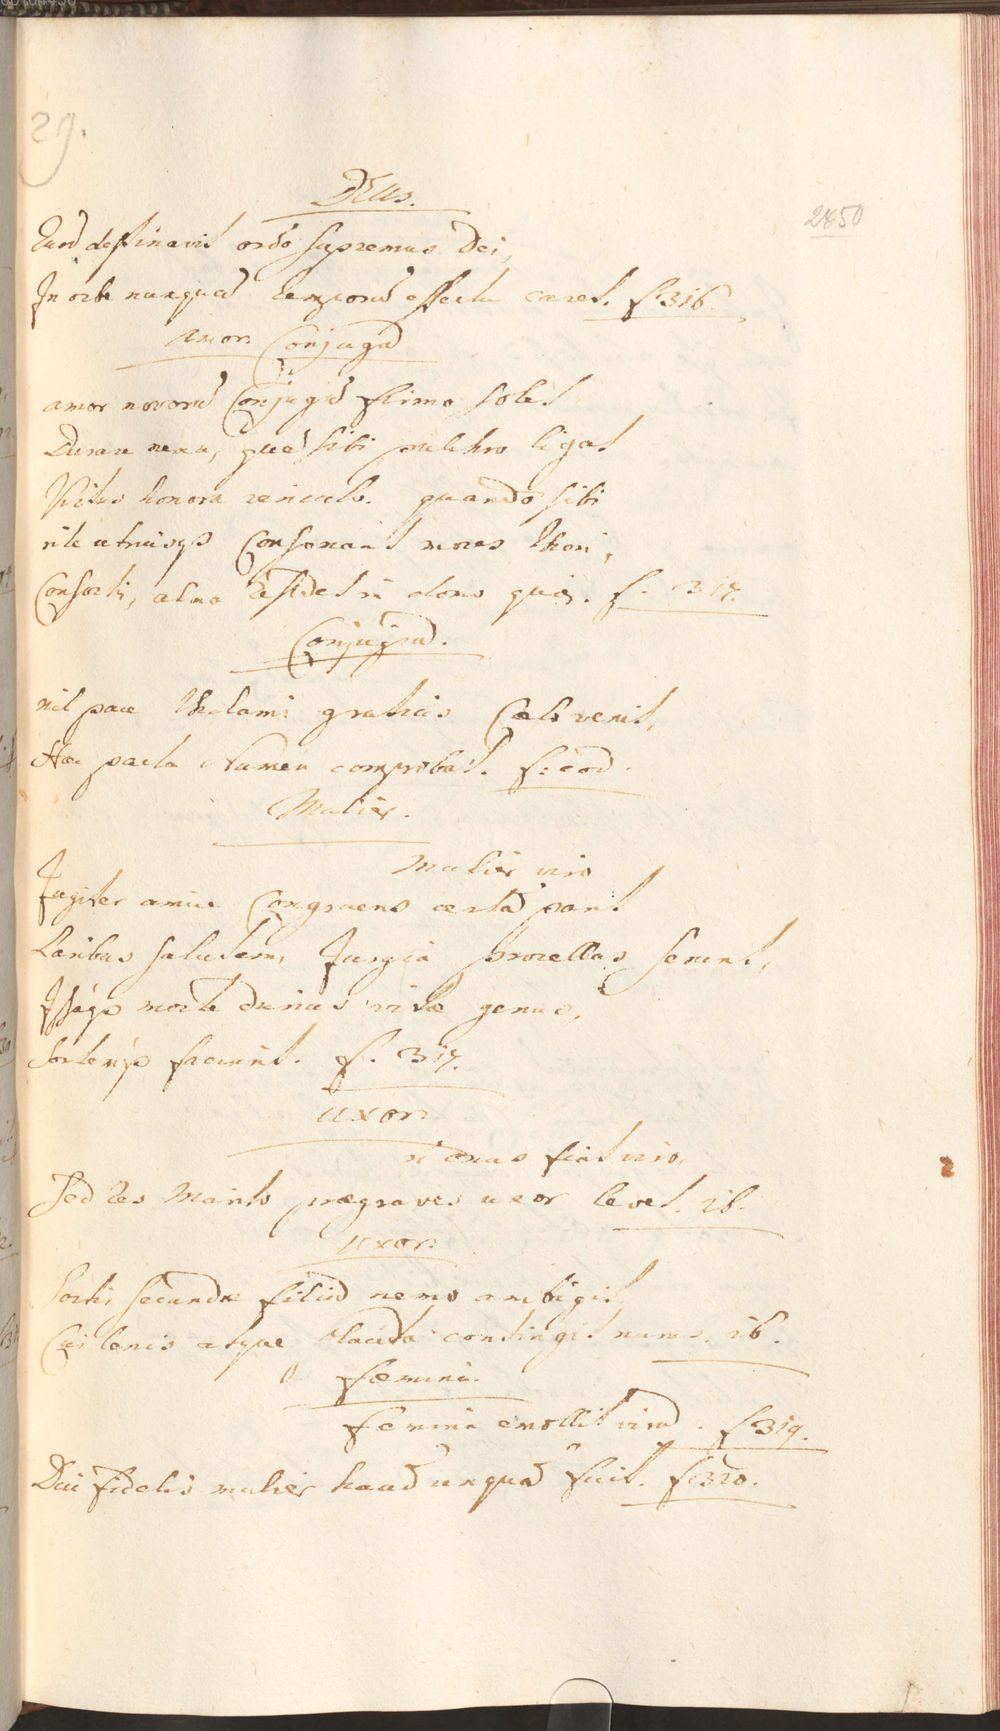 29.
2850
Deus.
Quod destinavit ordo supremus Dei,
In orbe nunquā temporū effectu caret. f. 316.
Amor Conjugū
amor novorū Conjugū firmo solet
Durare nexu, quos sibi pulchro ligat
Virtus honora vinculo. quando sibi
rite utriusque Consonant mores thori,
Consorti, alma residet in domo quies. f. 317.
Conjugiū.
nil pace thalami gratius Caelo venit,
Haec pacta Numen comprobat. f. eod.
Mulier.
Mulier viro
Jugiter amice Congruens certā parit
Laribus salutem, Jurgia procellas serunt,
Ipsáque morte durius vitae genus,
Sortémque faciunt. f. 317.
Uxor.
onus fiat viro,
Sed res Marito praegraves uxor levet. ib.
Uxor.
Sortis secundae filiū nemo ambigit,
Cui lenis atque placida contingit nurus. ib.
Faemina.
Femina emollit virū. f. 319.
Diu fidelis mulier haud unquā fuit. f. 320.